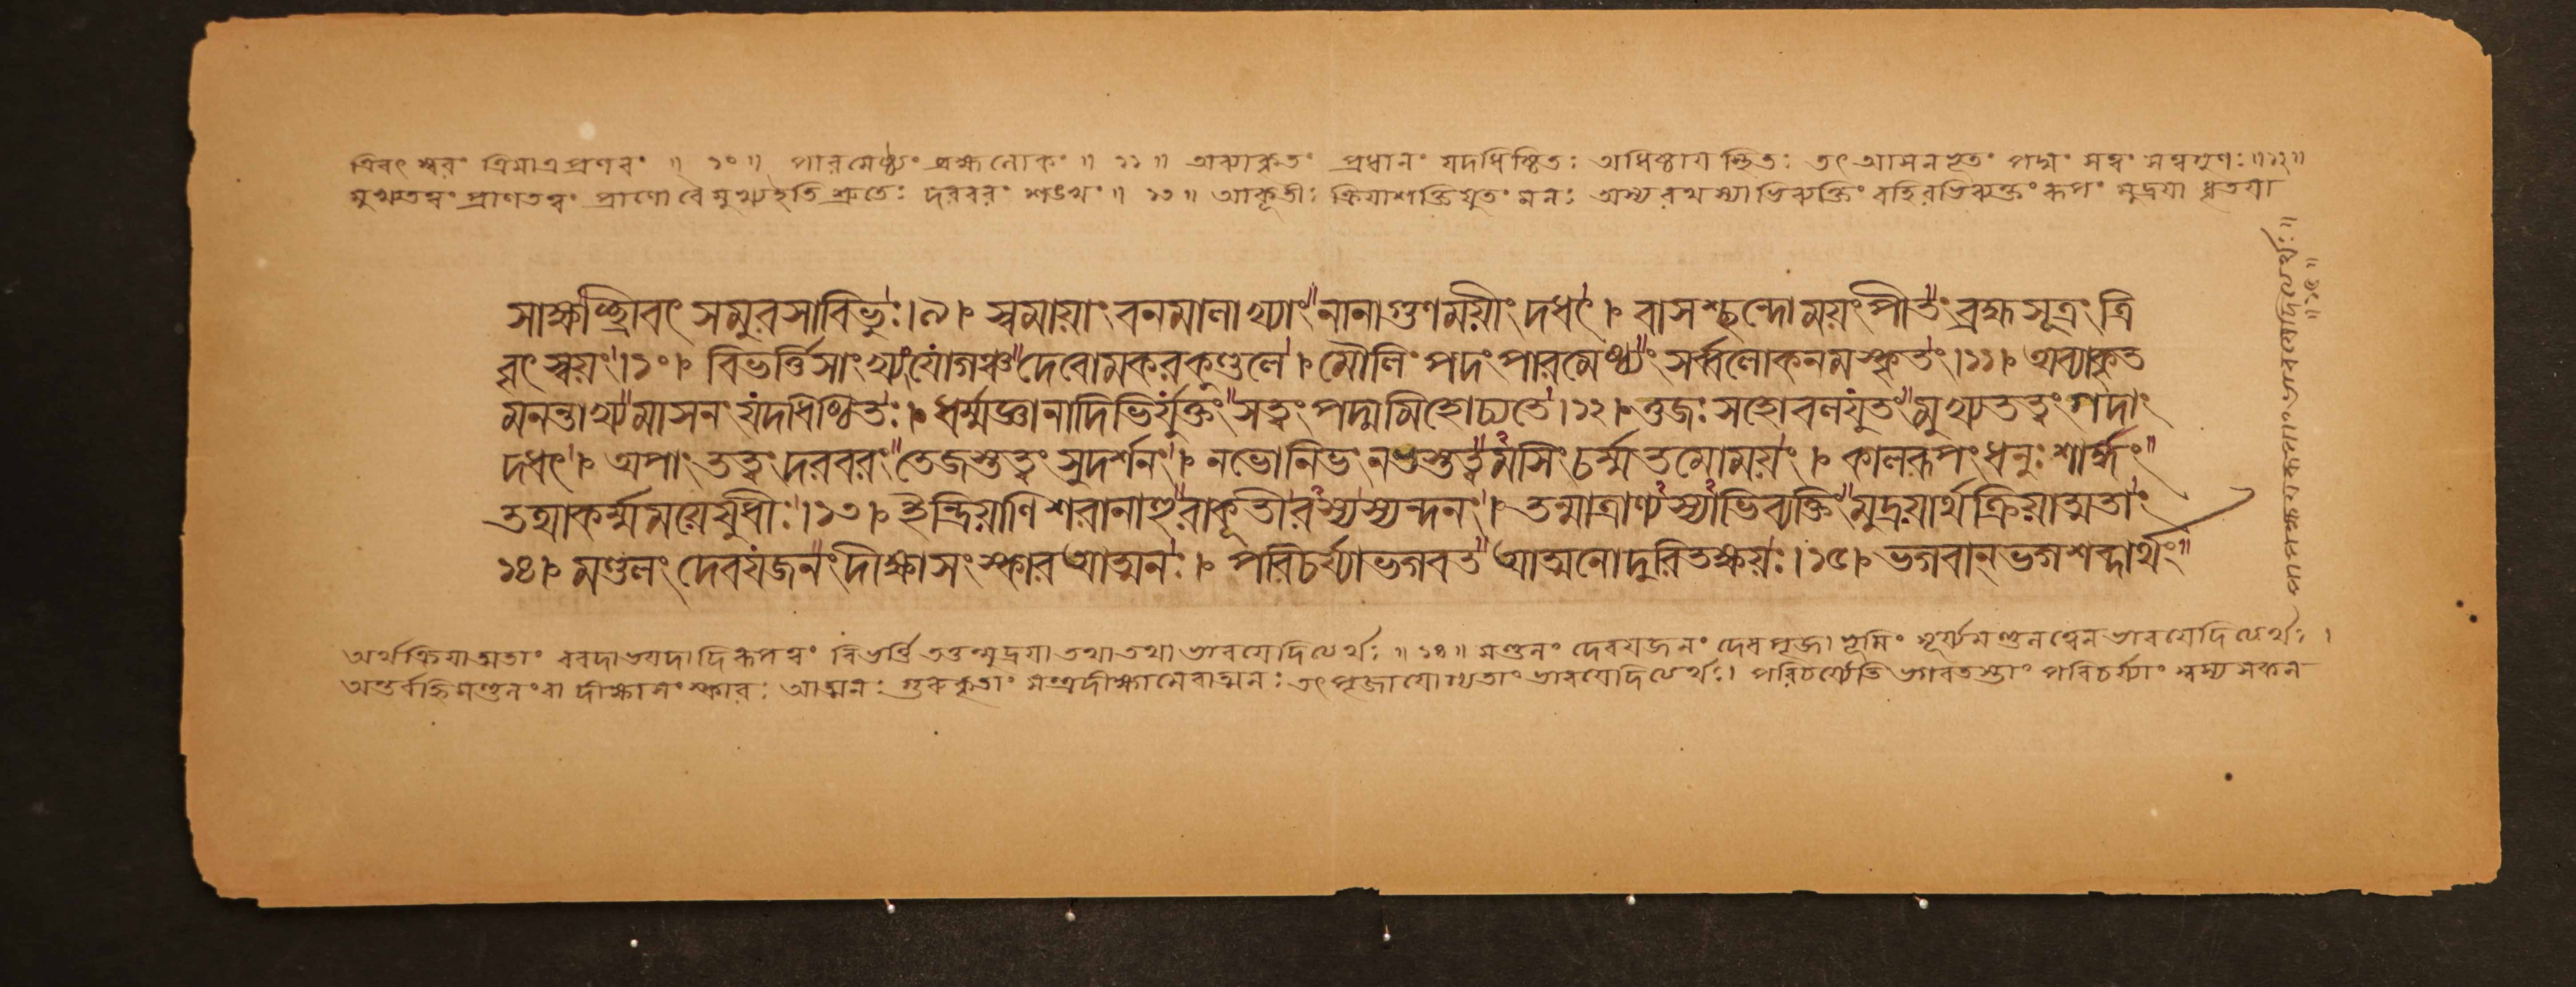 ত্রিবৎ স্বরং ত্রিমাত্রপ্রণবং ॥ ১০ ॥ পারমেষ্ঠ্যং ব্রহ্মলোকং ॥ ১১ ॥ অব্যাকৃতং প্রধানং যদধিষ্ঠিতঃ অধিষ্ঠায স্থিতঃ তৎ আসনভূতং পদ্মং সত্বং সত্বগুণঃ ॥১২॥
মুখ্যতত্বং প্রাণতত্বং প্রাণো বৈ মুখ্যইতি শ্রুতেঃ দরবরং শঙখং ॥ ১৩ ॥ আকূতীঃ ক্রিযাশক্তিযুতং মনঃ অস্য রথস্যাভিব্যক্তিং বহিরভিব্যক্তং রূপং মুদ্রযা ধৃতযা
সাক্ষাচ্ছ্রীবৎ সমুরসাবিভুঃ।৯। স্বমায়াং বনমালাখ্যাং নানাগুণময়ীং দধৎ। বাসশ্ছন্দোময়ং পীতং ব্রহ্মসূত্রং ত্রি
বৃৎ স্বরং।১০। বিভর্ত্তিসাংখ্যং যোগঞ্চ দেবোমকরকুণ্ডলে। মৌলিং পদং পারমেষ্ঠ্যং সর্ব্বলোকনমস্কৃতং।১১। অব্যাকৃত
মনন্তাখ্যমাসনং যদধিষ্ঠিতঃ। ধর্ম্মজ্ঞানাদিভির্যুক্তং সত্বং পদ্মমিহোচ্যতে।১২। ওজঃ সহোবলযুতং মুখ্যতত্বং গদাং
দধৎ। অপাং তত্বং দরবরং তেজস্তত্বং সুদর্শনং। নভোনিভং নভস্তত্বমসিং চর্ম্ম তমোময়ং। কালরূপং ধনুঃ শার্ঙ্গং
তথাকর্ম্মময়েযুধীঃ।১৩। ইন্দ্রিয়াণি শরানাহুরাকূতীরস্যস্যন্দনং। তন্মাত্রাণ্যস্যাভিব্যক্তিং মুদ্রয়ার্থক্রিয়াত্মতাং
১৪। মণ্ডলং দেবযজনং দীক্ষাসংস্কার আত্মনঃ। পরিচর্য্যাভগবত আত্মনোদুরিতক্ষয়ঃ।১৫। ভগবান্ ভগশব্দার্থং
অর্থক্রিযাত্মতাং বরদাভযদাদিরূপত্বং বিভর্ত্তি তত্তন্মুদ্রযা তথা তথা ভাবযেদিত্যর্থঃ ॥ ১৪ ॥ মণ্ডলং দেবযজনং দেবপূজাভূমিং সূর্য্যমণ্ডলত্বেন ভাবযেদিত্যর্থঃ।
অন্তর্বহ্নিমণ্ডলং বা দীক্ষাসংস্কারঃ আত্মনঃ গুরুকৃতাং মন্ত্রদীক্ষামেবাত্মনঃ তৎপূজাযোগ্যতাং ভাবযেদিত্যর্থঃ। পরিচর্য্যেতি ভগবতস্তাং পরিচর্য্যাং স্বস্য সকল
॥১৫॥